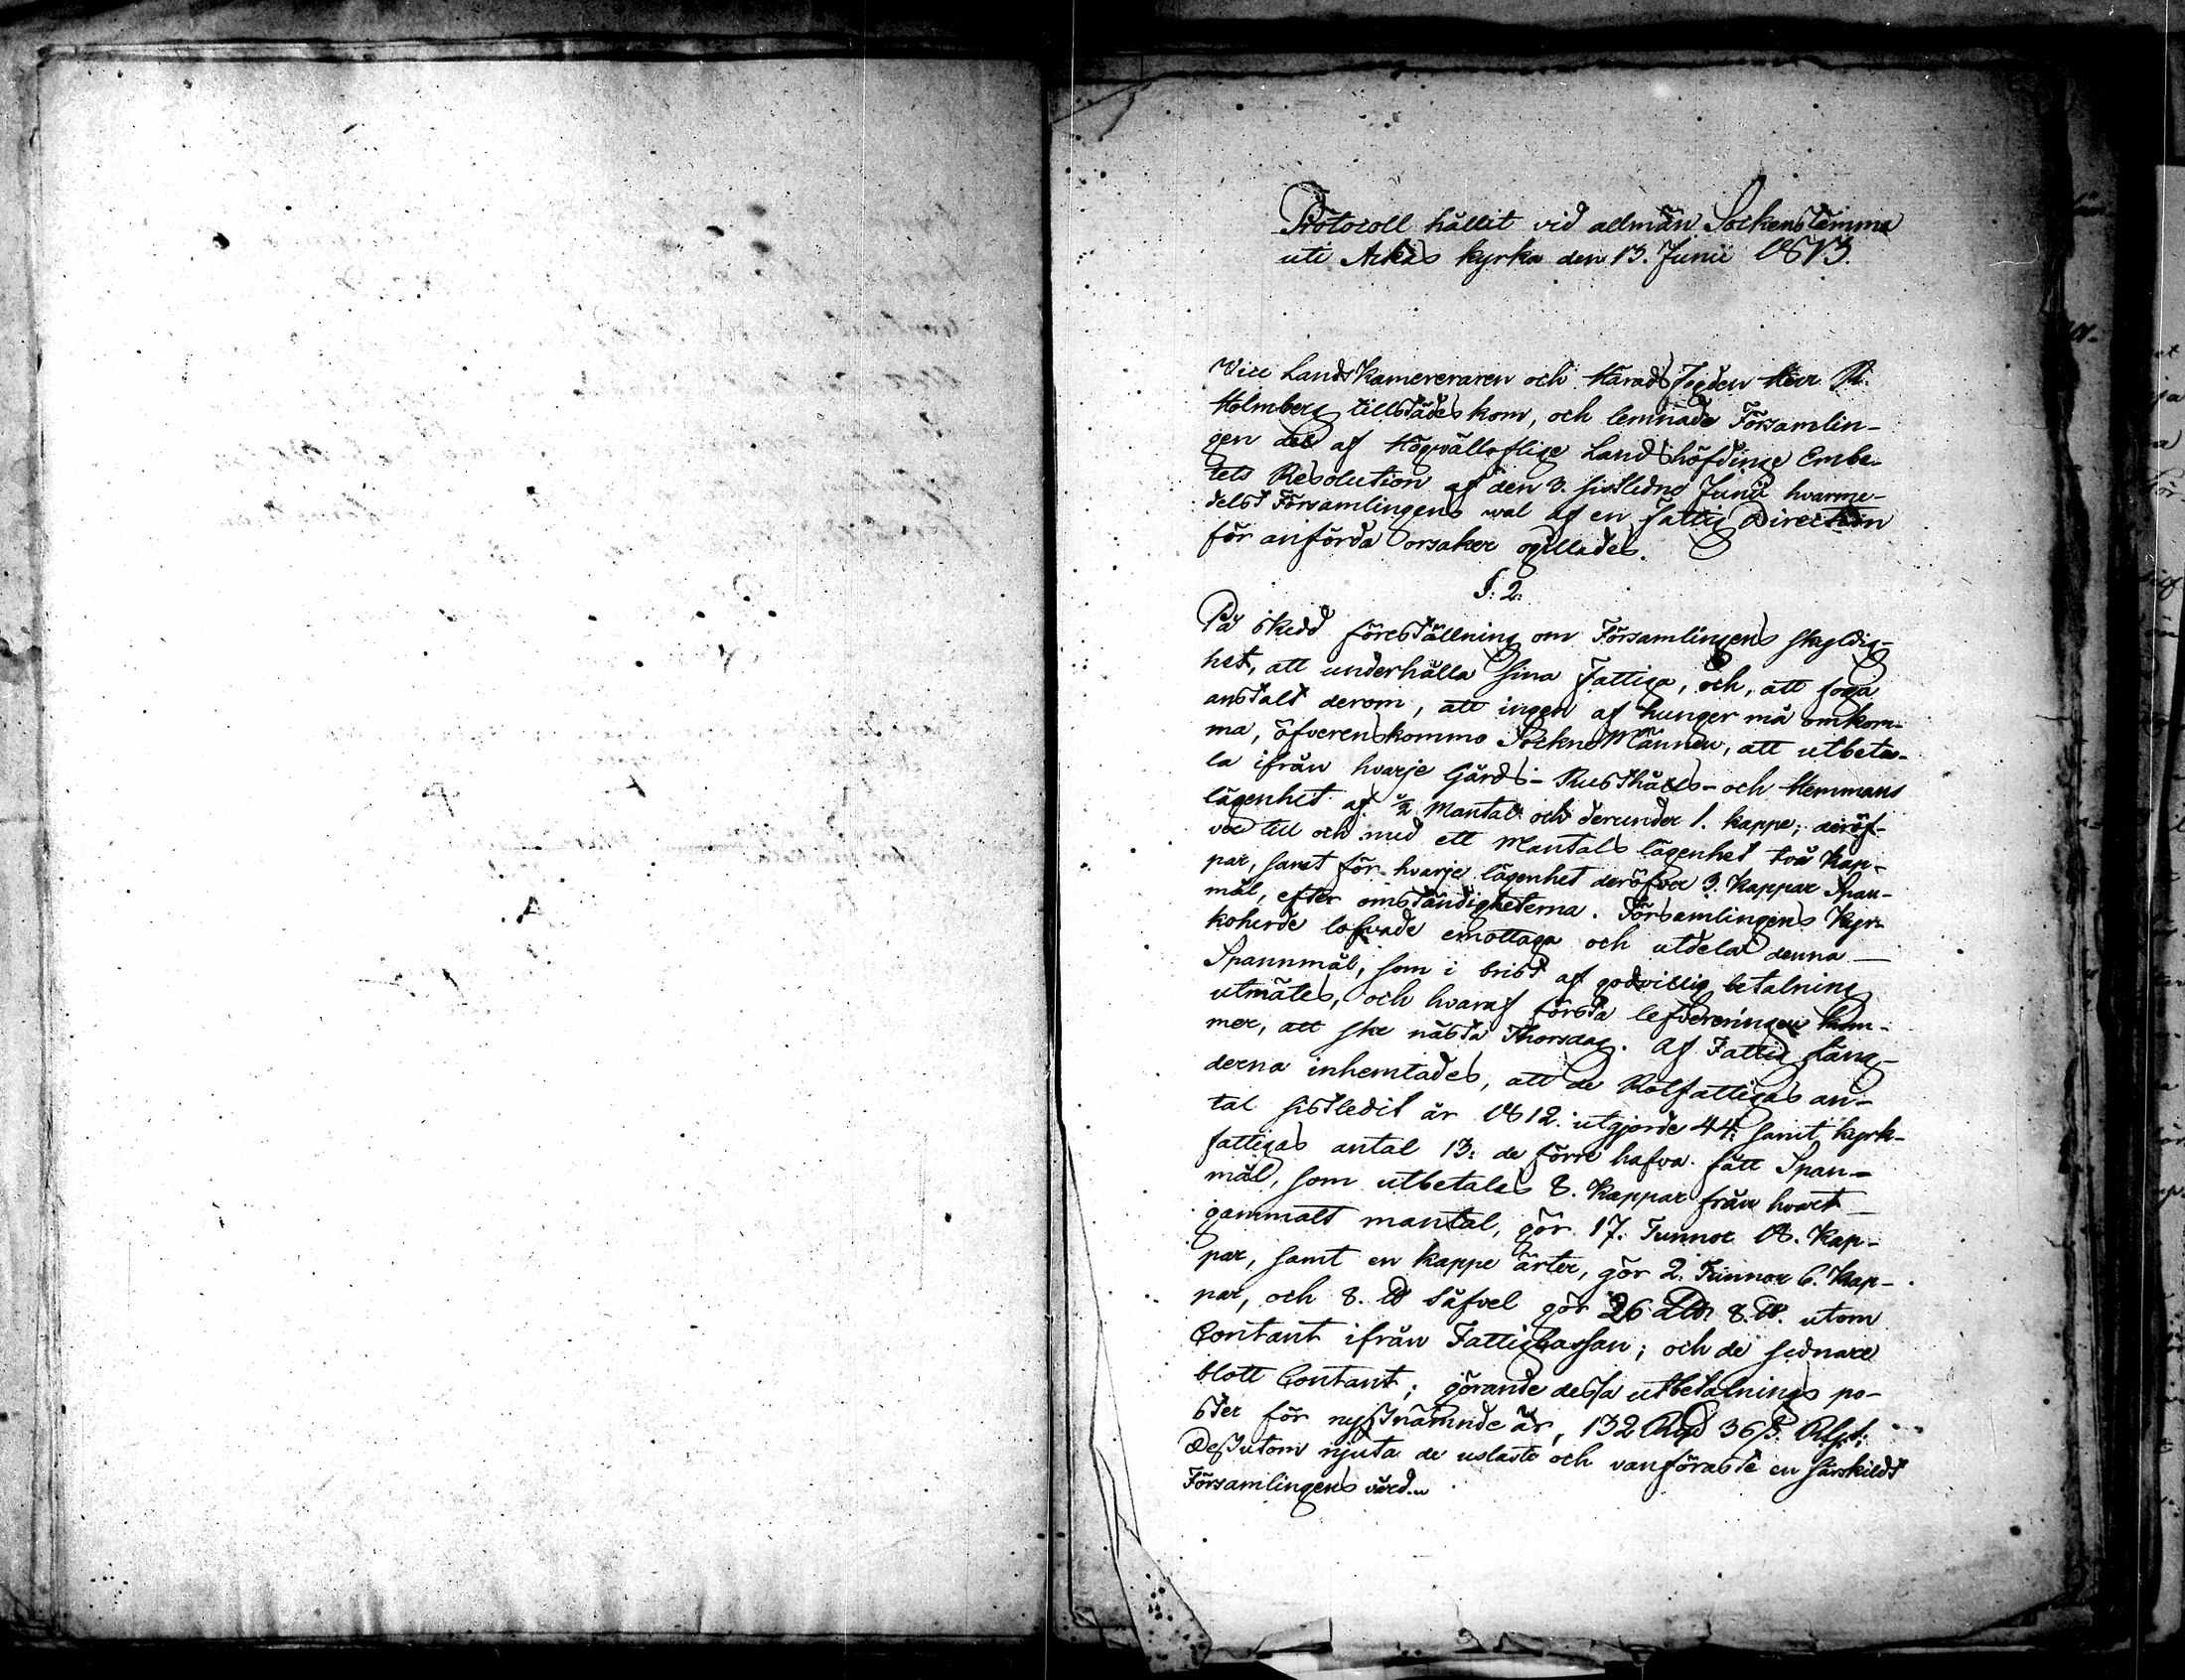 Protocoll hållit vid allmän Sockenstämma
uti Arkäs kyrka den 13. Junii 1813.
Vice Landskamereraren och Häradsfogden Herr R.
Holmberg tillstädeskom, och lemnade Församlin-
gen del af Högvälloflige Landshöfdinge Embe-
tets Resolution af den 3. sistledne Junii hvarme-
delst Församlingens wal af en fattig Direction
för anförda orsaker ogillades.
§. 2.
På skedd föreställning om Församlingens skyldig-
het, att underhålla sina Fattiga, och, att foga
anstalt derom, att ingen af hunger må omkom-
ma, öfverenskommo SockneMännen, att utbeta-
la ifrån hvarje Gårds- Rusthålls- och Hemmans
lägenhet af 1/2 Mantal och derunder 1. kappe; deröf-
ver till och med ett Mantals lägenhet två kap-
par, samt för hvarje lägenhet deröfver 3. kappar Span-
mål, efter omständigheterna. Församlingens Kyr-
koherde lofvade emottaga och utdela denna
Spannmål, som i brist af godvillig betalning
utmätes, och hvaraf första lefvereringen kom-
mer, att ske nästa Thorsdag. Af Fattig läng-
derna inhemtades, att de Rotfattigas an-
tal sistledit år 1812. utgjorde 44: samt kyrk-
fattigas antal 13: de förre hafva fått Span-
mål, som utbetales 8. Kappar från hvart
gammalt mantal, gör 17. Tunnor 18. Kap-
par, samt en kappe ärter, gör 2. Tunnor 6. Kap-
par, och 8. ℔ såfvel gör 26 L℔ 8. ℔. utom
Contant ifrån Fattigcassan; och de sednare
blott Contant; görande dessa utbetalnings po-
ster för nyssnämnde år, 132 Rd 36 ß. Rgs;
Dessutom njuta de uslaste och vanföraste en särskildt
Församlingens vård...